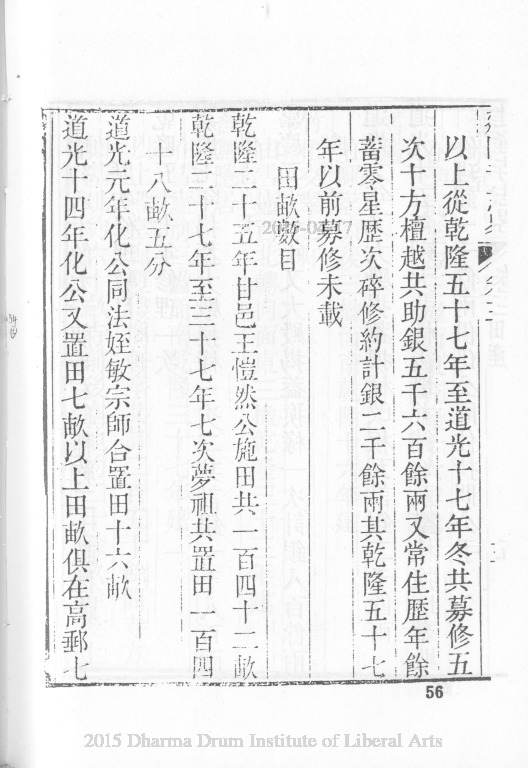 以上從乾隆五十七年至道光十七年冬共募修五
次十方檀越共助銀五千六百餘兩又常住歷年餘
蓄零星歷次碎修約計銀二千餘兩其乾隆五十七
年以前募修未載
田畝數目
乾隆三十五年甘邑王愷然公施田共一百四十二畝
乾隆二十七年至三十七年七次夢祖共置田一百四
十八畝五分
道光元年化公同法姪敏宗師合置田十六畝
道光十四年化公又置田七畝以上田畝俱在高郵七
56
2015 Dharma Drum Institute of Liberal Arts